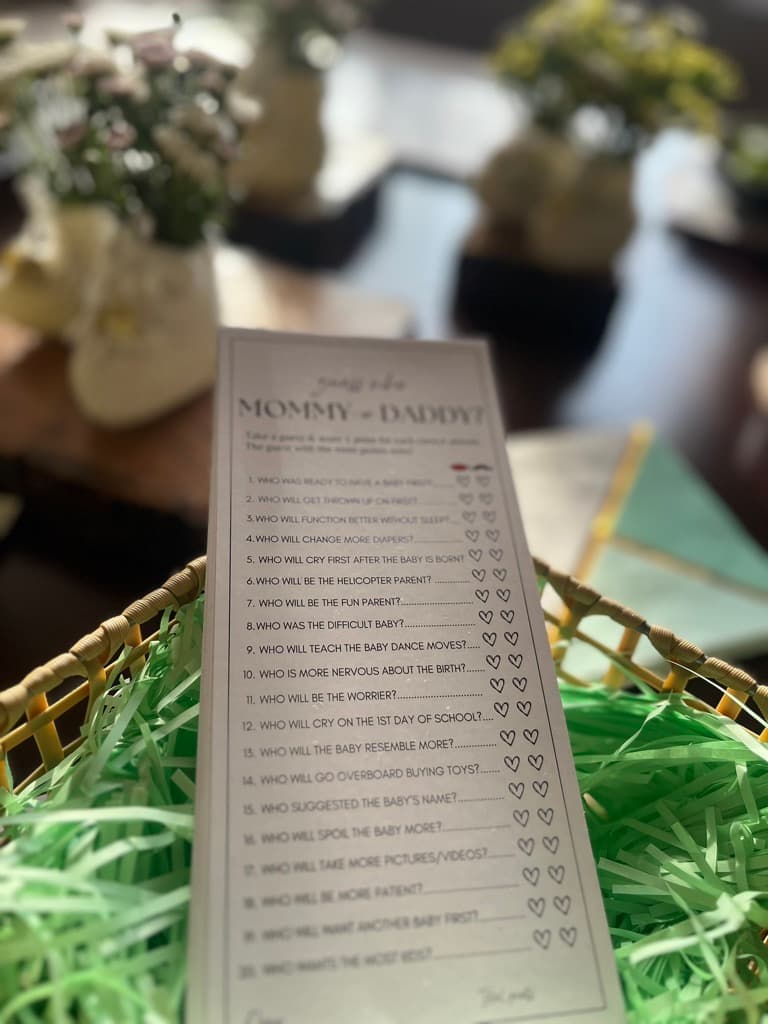 guess who
MOMMY or DADDY?
Take a guess & score 1 point for each correct answer.
The guest with the most points wins!
1. WHO WAS READY TO HAVE A BABY FIRST?.......
2. WHO WILL GET THROWN UP ON FIRST?..........
3.WHO WILL FUNCTION BETTER WITHOUT SLEEP?....
4.WHO WILL CHANGE MORE DIAPERS?..............
5. WHO WILL CRY FIRST AFTER THE BABY IS BORN?
6.WHO WILL BE THE HELICOPTER PARENT? ............
7. WHO WILL BE THE FUN PARENT?........................
8.WHO WAS THE DIFFICULT BABY?........................
9. WHO WILL TEACH THE BABY DANCE MOVES?.....
10. WHO IS MORE NERVOUS ABOUT THE BIRTH?......
11. WHO WILL BE THE WORRIER?............................
12. WHO WILL CRY ON THE 1ST DAY OF SCHOOL?....
13. WHO WILL THE BABY RESEMBLE MORE?.............
14. WHO WILL GO OVERBOARD BUYING TOYS?......
15. WHO SUGGESTED THE BABY'S NAME?..............
16. WHO WILL SPOIL THE BABY MORE?....................
17. WHO WILL TAKE MORE PICTURES/VIDEOS?.......
18. WHO WILL BE MORE PATIENT?..........................
19. WHO WILL WANT ANOTHER BABY FIRST?............
20. WHO WANTS THE MOST KIDS?..........................